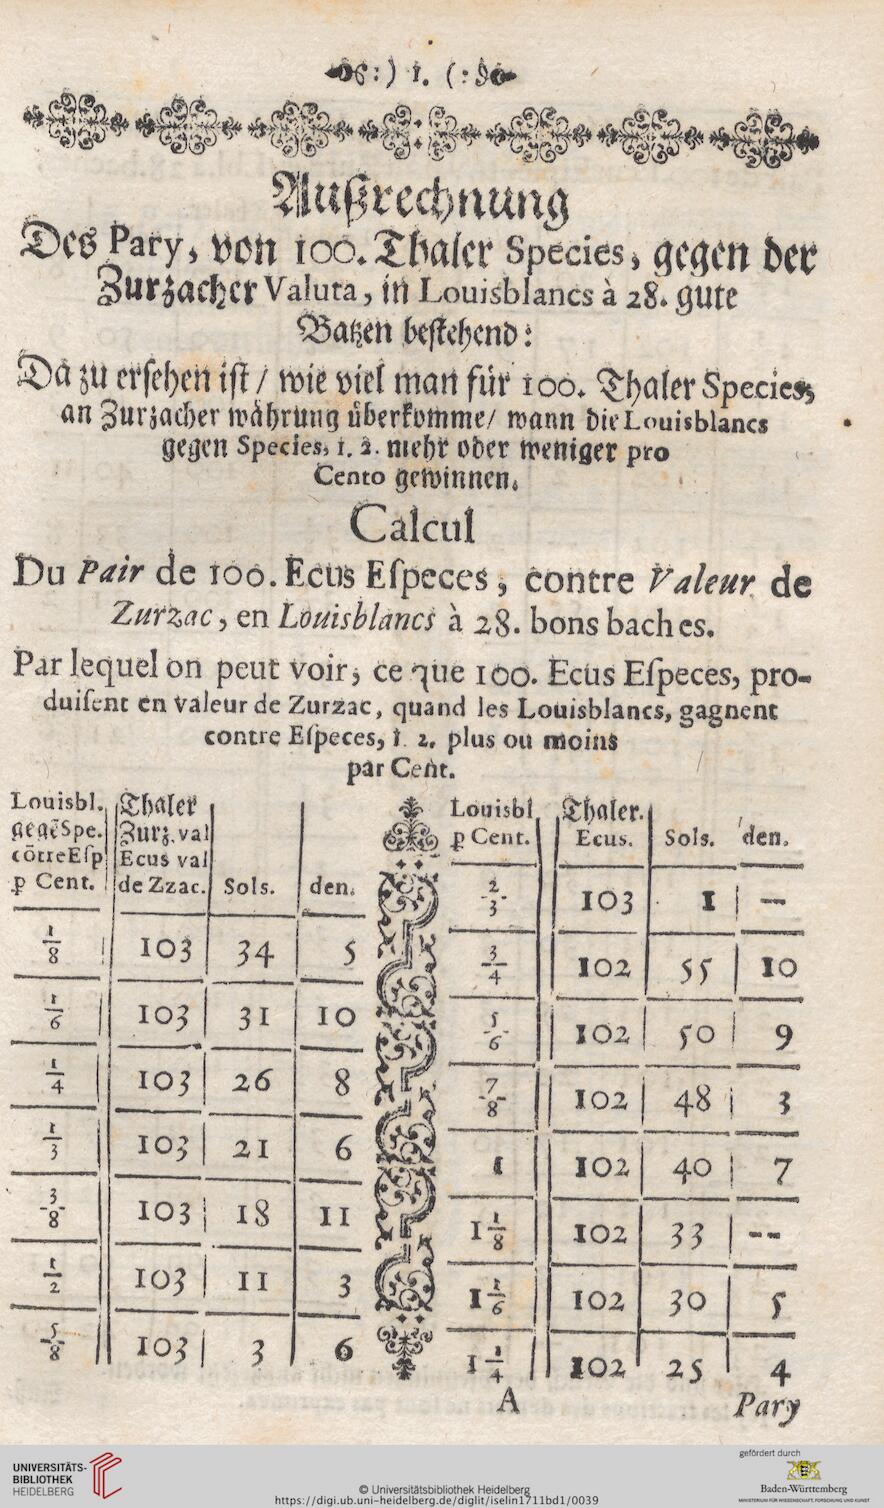 :) 1. (:
Außrechnung
Des Pary, von 100. Thaler Species, gegen der
Zurzacher Valuta, in Louisblancs à 28. gute
Batzen bestehend:
Da zu ersehen ist / wie viel man für 100. Thaler Species,
an Zurzacher währung überkomme/ wann die Louisblancs
gegen Species, 1. 2. mehr oder weniger pro
Cento gewinnen.
Calcul
Du Pair de 100. Ecus Eſpeces, contre Valeur de
Zurzac, en Louisblancs à 28. bons baches.
Par lequel on peut voir, ce que 100. Ecus Eſpeces, pro-
duiſent en valeur de Zurzac, quand les Louisblancs, gagnent
contre Eſpeces, 1. 2. plus ou moins
par Cent.
Louisbl. Thaler
gegēSpe. Zurz. val
cōtreEſp Ecus val
ꝑ Cent. de Zzac. Sols. den.
1/8 103 34 5
1/6 103 31 10
1/4 103 26 8
1/3 103 21 6
3/8 103 18 11
1/2 103 11 3
5/8 103 3 6
Louisbl Thaler.
ꝑ Cent. Ecus. Sols. den.
2/3 103 1 —
3/4 102 55 10
5/6 102 50 9
7/8 102 48 3
1 102 40 7
1 1/8 102 33 --
1 1/6 102 30 5
1 1/4 102 25 4
A Pary
UNIVERSITÄTS-
BIBLIOTHEK
HEIDELBERG
© Universitätsbibliothek Heidelberg
https://digi.ub.uni-heidelberg.de/diglit/iselin1711bd1/0039
gefördert durch
Baden-Württemberg
MINISTERIUM FÜR WISSENSCHAFT, FORSCHUNG UND KUNST